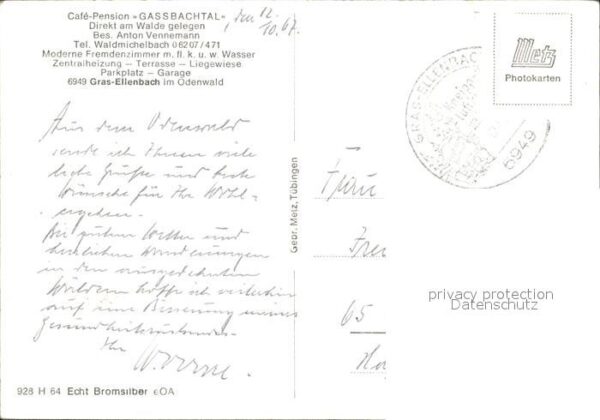 Café-Pension »GASSBACHTAL«
Direkt am Walde gelegen
Bes. Anton Vennemann
Tel. Waldmichelbach 06207/471
Moderne Fremdenzimmer m. fl. k. u. w. Wasser
Zentralheizung – Terrasse – Liegewiese
Parkplatz – Garage
6949 Gras-Ellenbach im Odenwald
, den 12.
10.67.
Metz
Photokarten
GRAS-ELLENBACH
6949
Aus dem Odenwald
sende ich Ihnen viele
liebe Grüße und beste
Wünsche für Ihr Wohl-
ergehen.
Bei gutem Wetter und
herrlichen Wanderungen
in den ausgedehnten
Wäldern hoffe ich weiterhin
auf eine Besserung meines
Gesundheitszustandes.
Ihr
Gebr. Metz, Tübingen
Frau
65
privacy protection
Datenschutz
928 H 64 Echt Bromsilber eOA